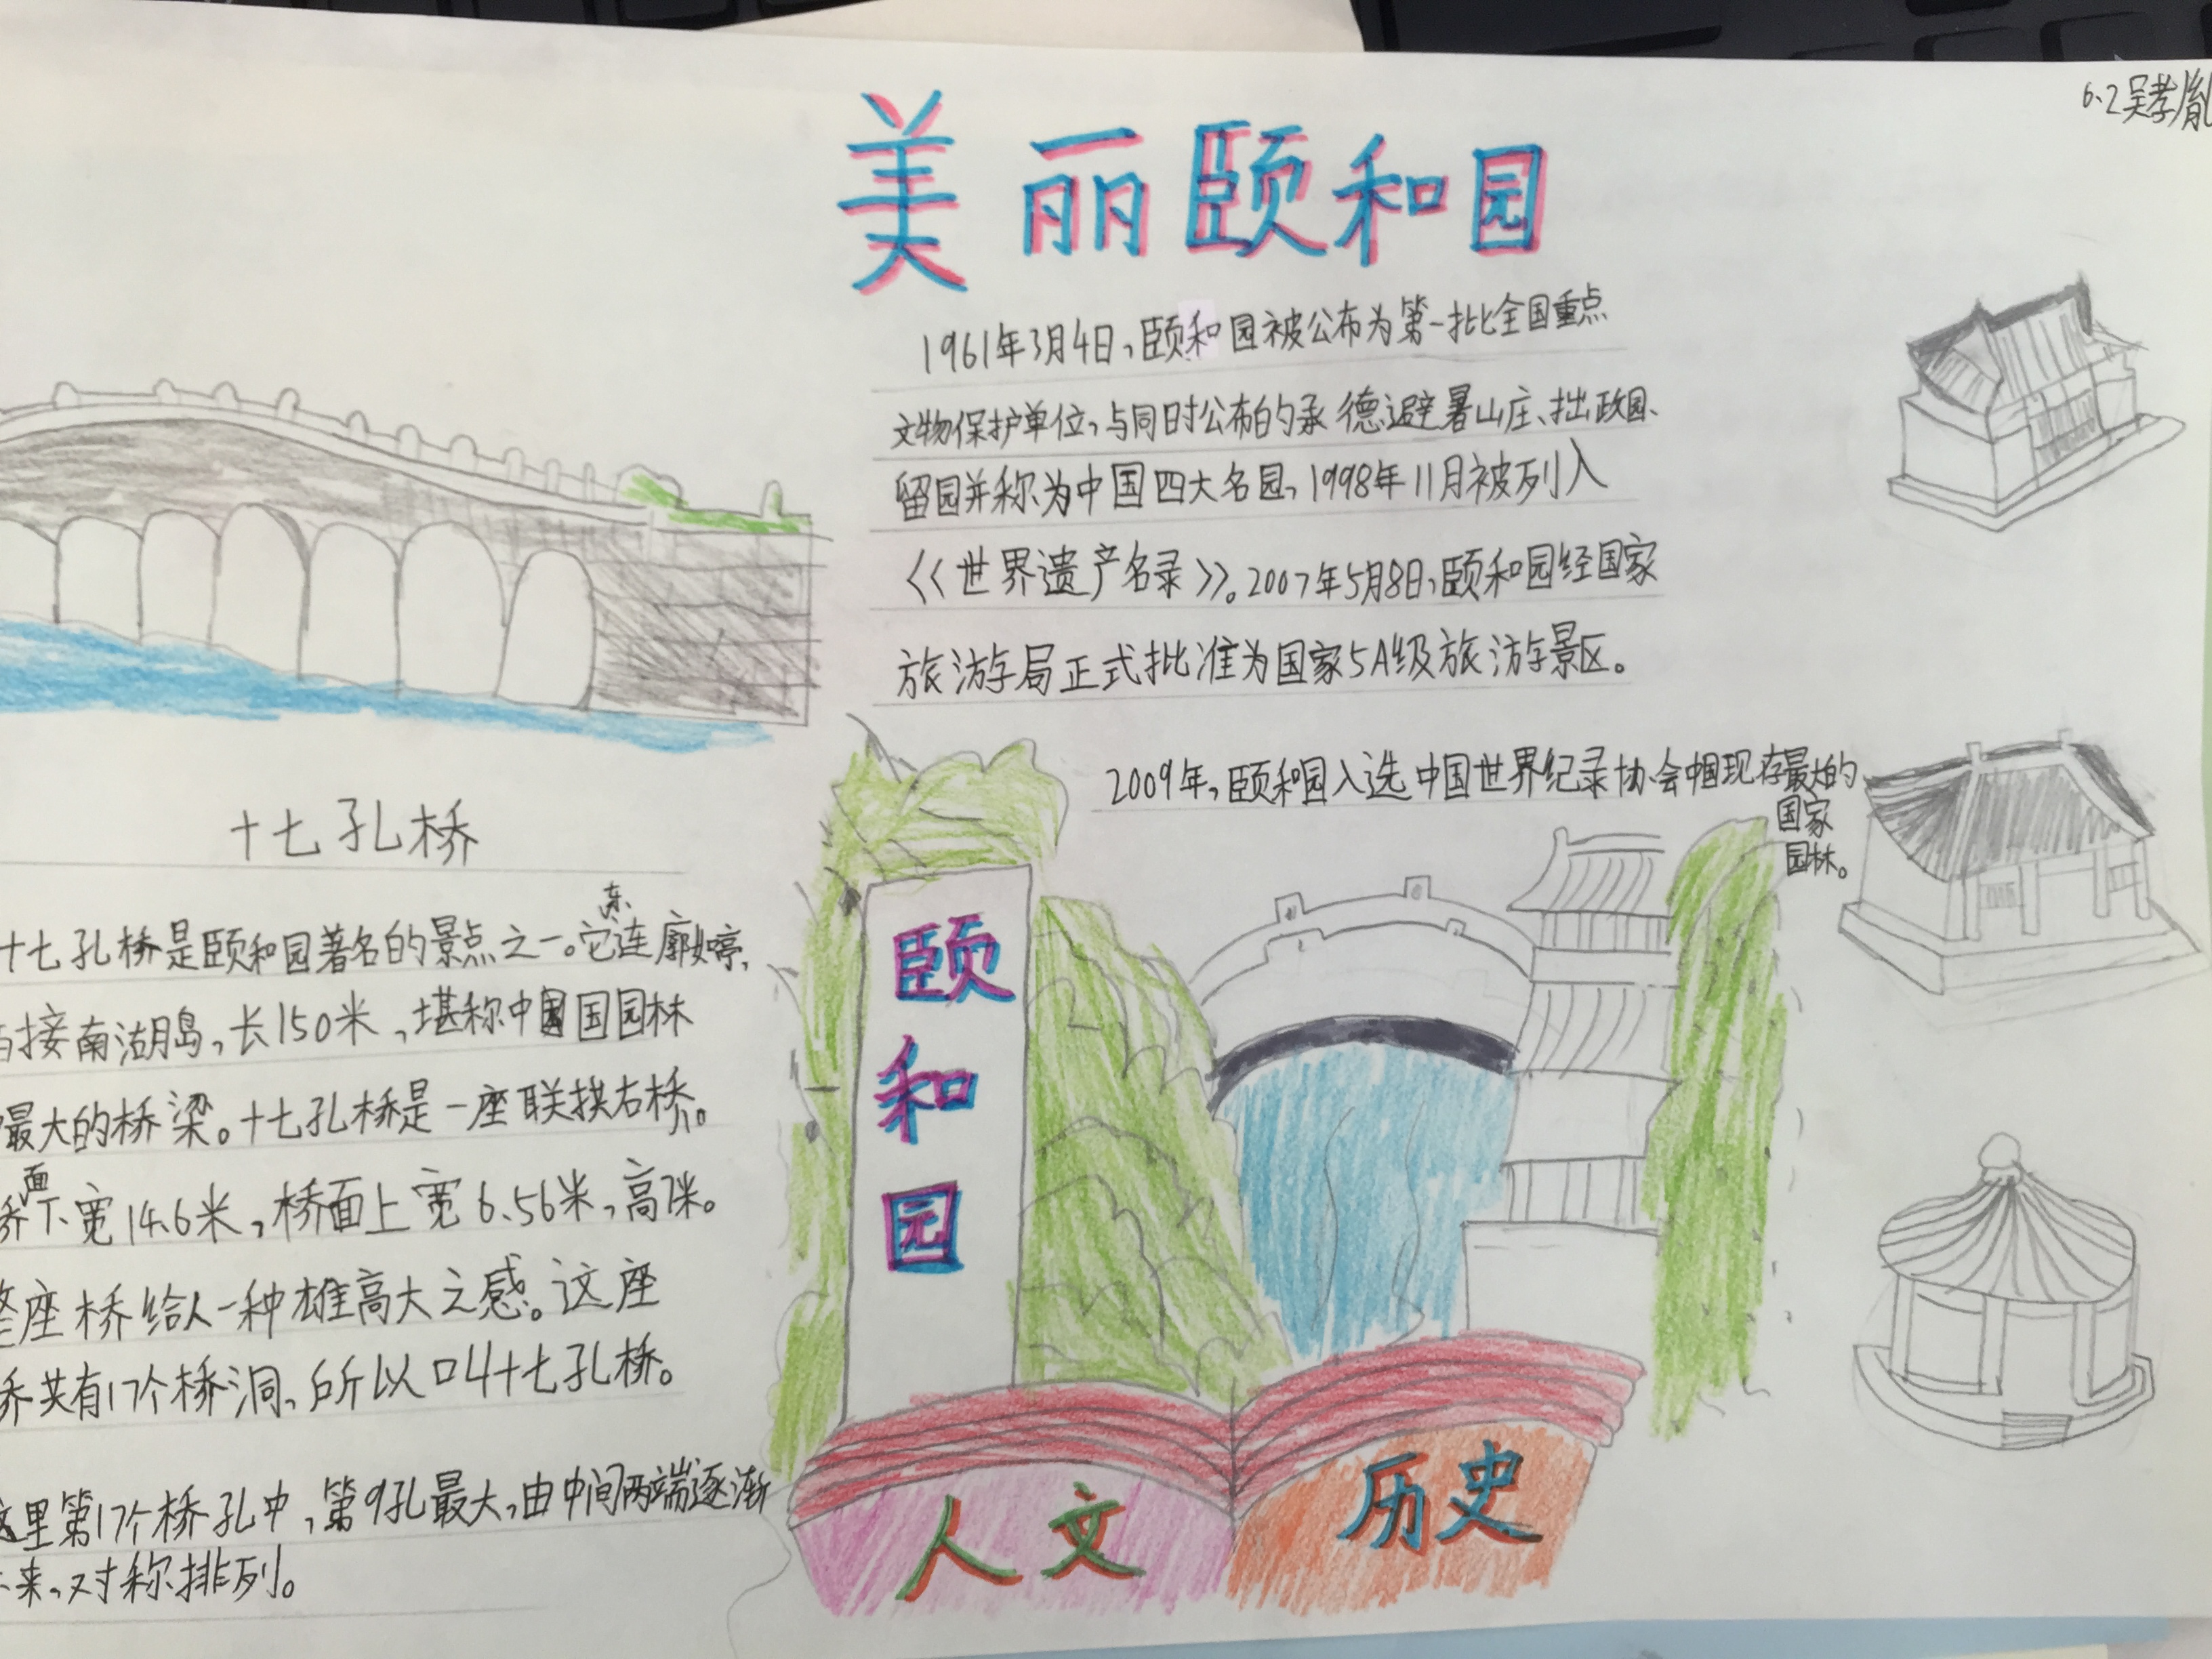 6.2吴孝胤
美丽颐和园
1961年3月4日,颐和园被公布为第一批全国重点
文物保护单位,与同时公布的承德避暑山庄、拙政园、
留园并称为中国四大名园,1998年11月被列入
《世界遗产名录》。2007年5月8日,颐和园经国家
旅游局正式批准为国家5A级旅游景区。
2009年,颐和园入选中国世界纪录协会中国现存最大的
国家
园林。
十七孔桥
十七孔桥是颐和园著名的景点之一。它东连廓如亭,
接南湖岛,长150米,堪称中国园林
最大的桥梁。十七孔桥是一座联拱石桥。
桥面下宽14.6米,桥面上宽6.56米,高7米。
整座桥给人一种雄高大之感。这座
桥共有17个桥洞,所以叫十七孔桥。
这里第17个桥孔中,第9孔最大,由中间两端逐渐
来,对称排列。
颐和园
人文
历史